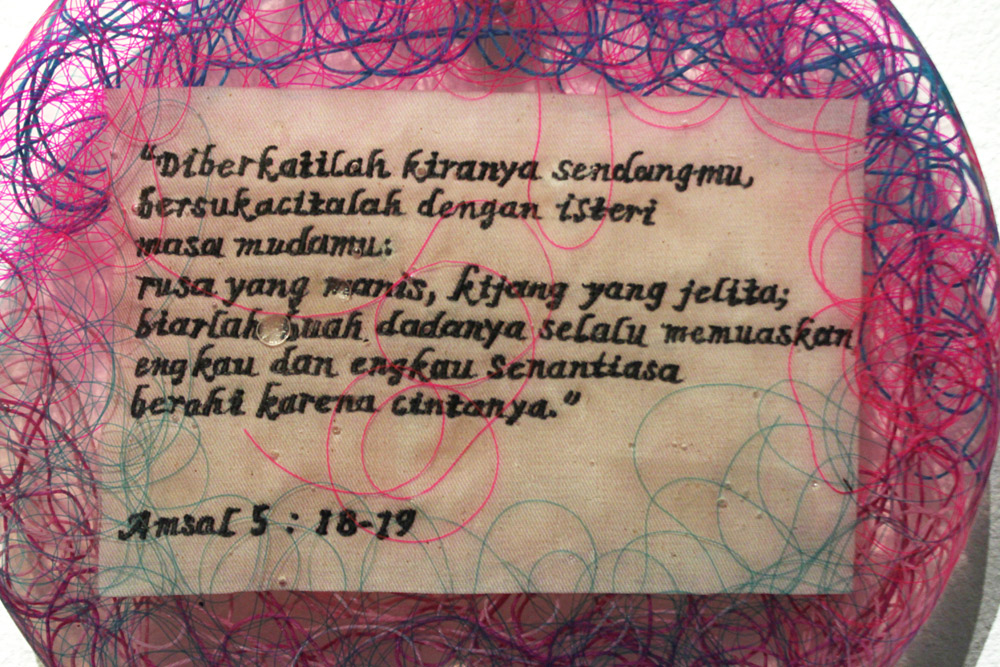 “Diberkatilah kiranya sendangmu,
bersukacitalah dengan isteri
masa mudamu:
rusa yang manis, kijang yang jelita;
biarlah buah dadanya selalu memuaskan
engkau dan engkau senantiasa
berahi karena cintanya.”
Amsal 5 : 18-19